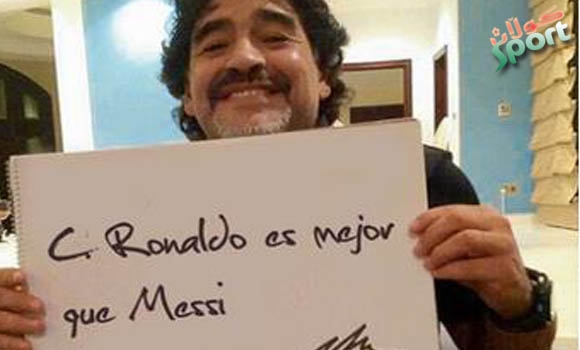 كولاث
Sport
C. Ronaldo es mejor
que Messi